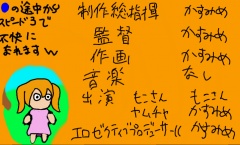 ●の途中から
スピード3で
不快に
なれますw
制作総指揮 かすみめ
監督 かすみめ
作画 かすみめ
音楽 なし
出演 もこさん もこさん
ヤムチャ かすみめ
エロゼクティブプロデューサー(( かすみめ